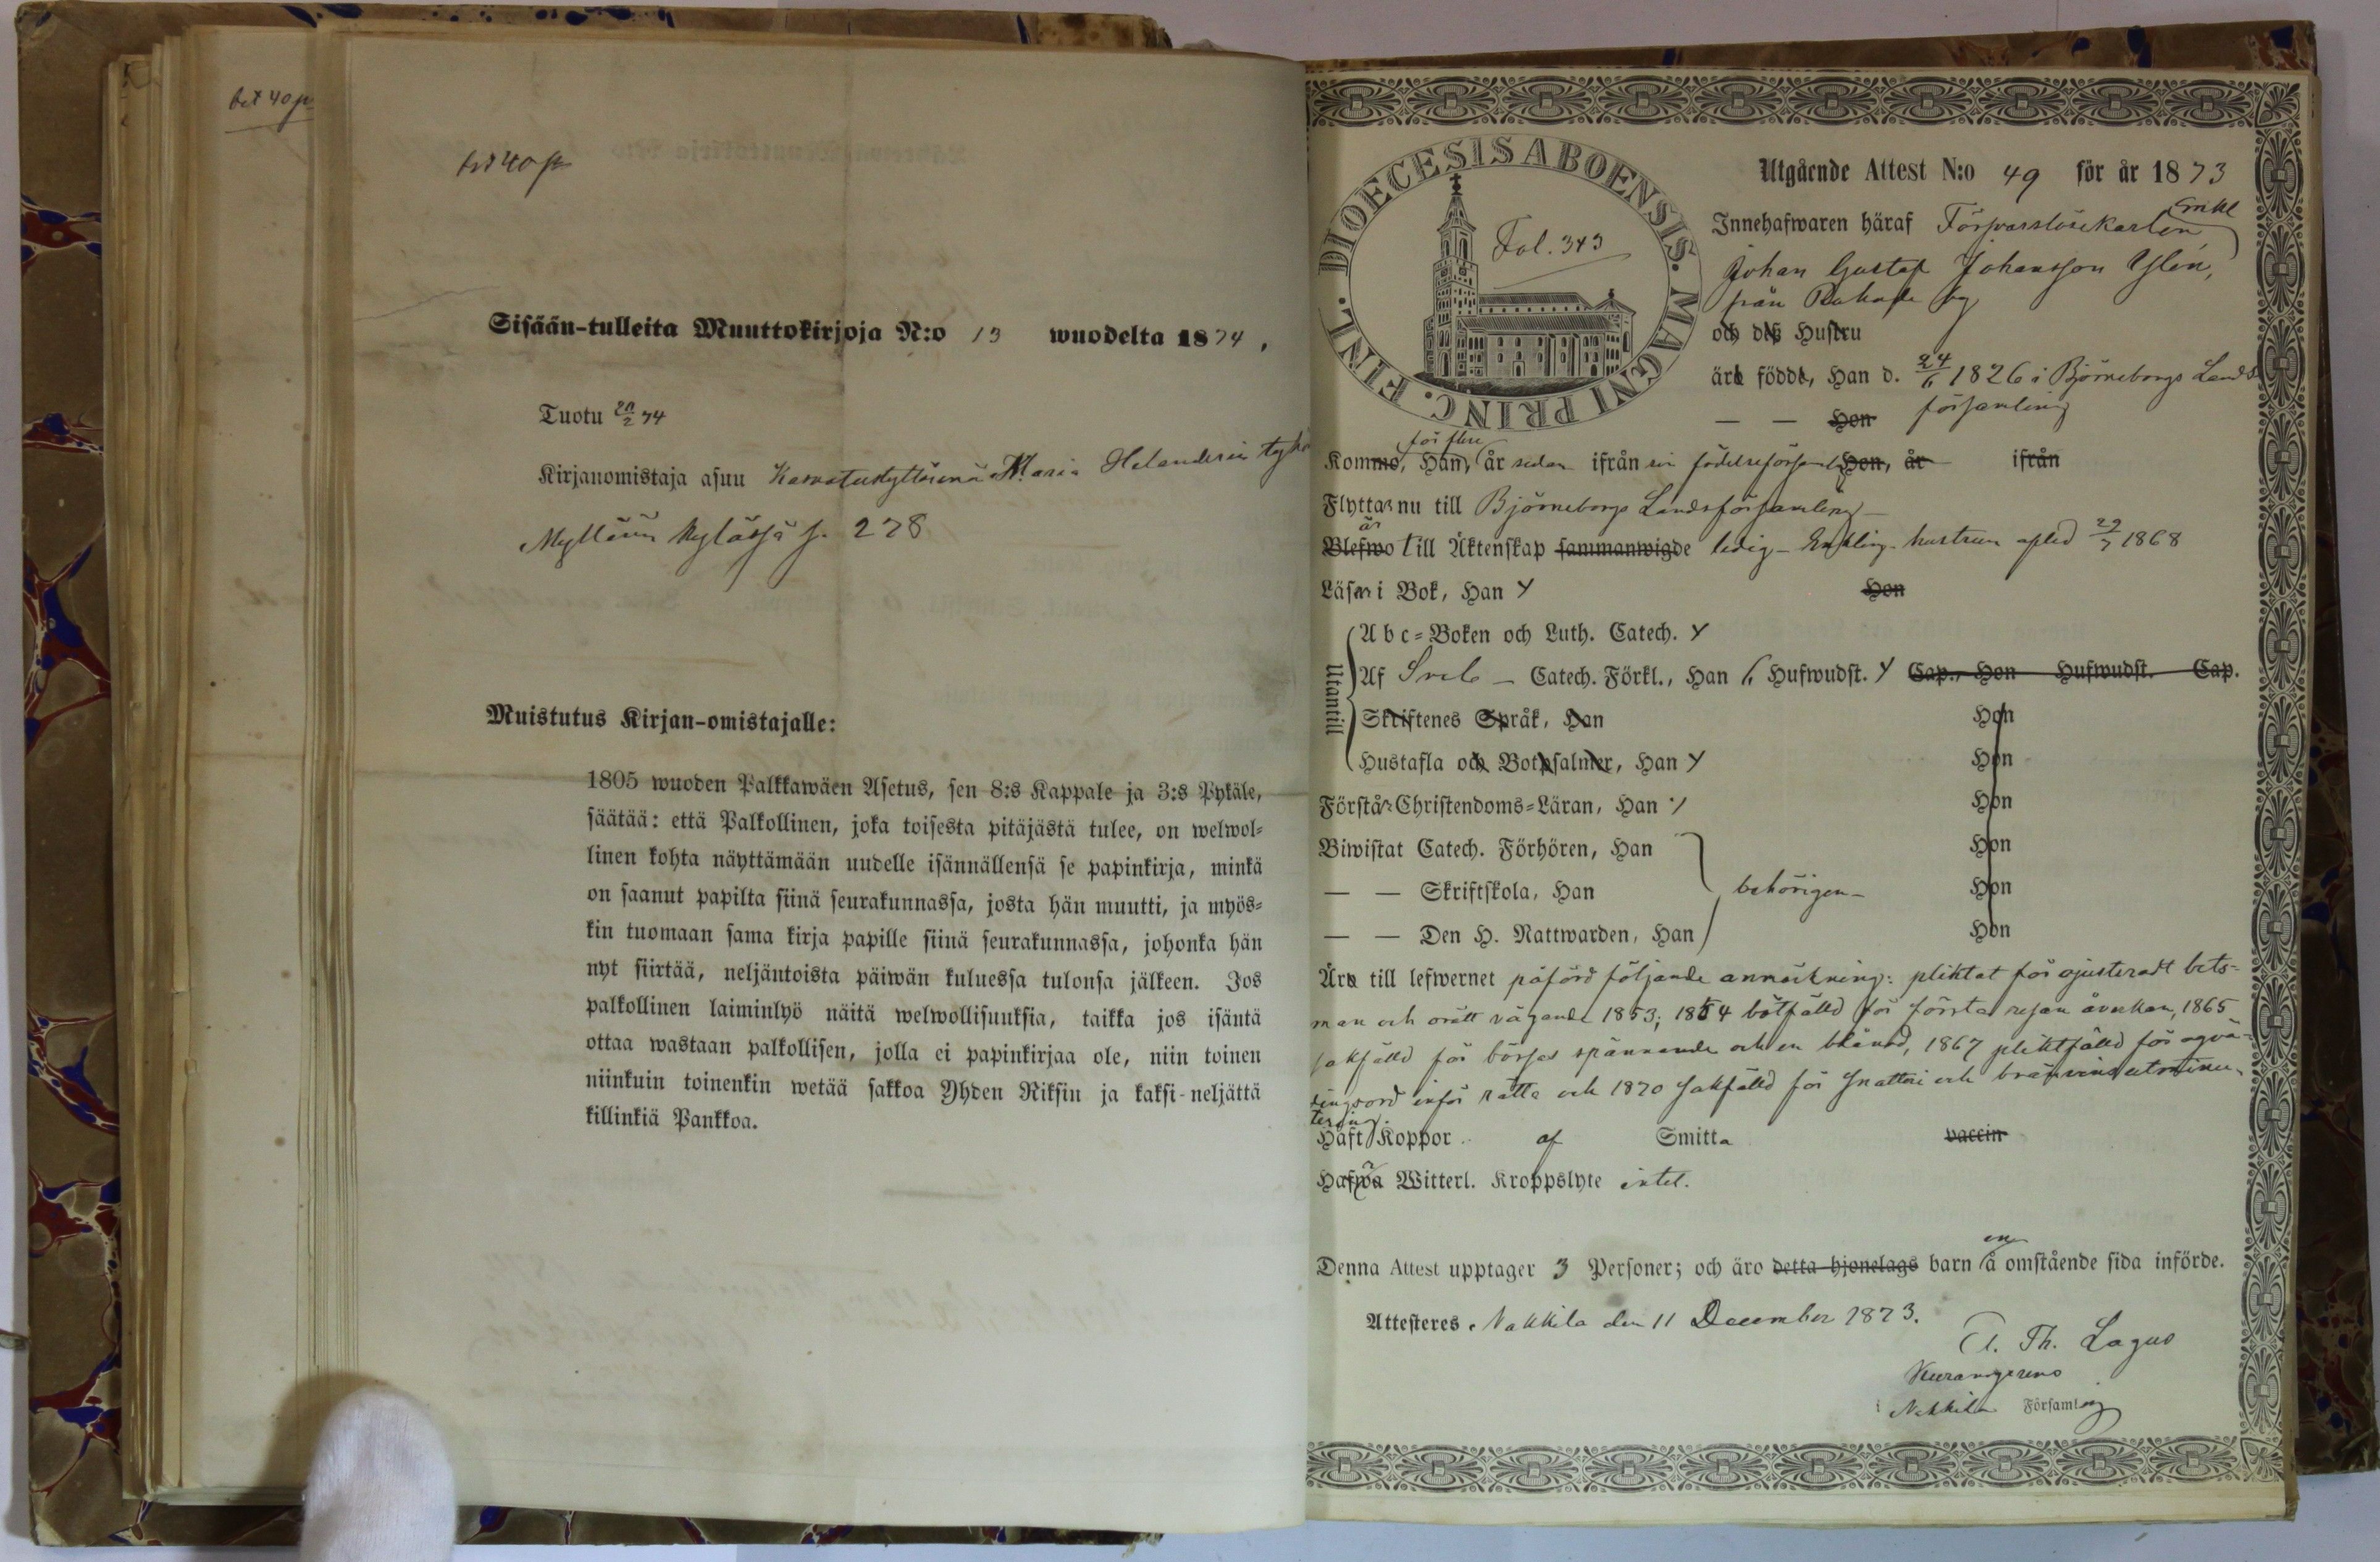 bet 40 p
bet 40 p
Sisään-tulleita Muuttokirjoja N:o 13 wuodelta 1874.
Tuotu 20/2 74
Kirjanomistaja asuu Kasvatustyttärensä Maria Helanderin tykö
kylässä s. 278
Muistutus Kirjan-omistajalle:
1805 wuoden Palkkawäen Asetus, sen 8:s Kappale ja 3:s Pykäle,
säätää: että Palkollinen, joka toisesta pitäjästä tulee, on welwol-
linen kohta näyttämään uudelle isännällensä se papinkirja, minkä
on saanut papilta siinä seurakunnassa, josta hän muutti, ja myös-
kin tuomaan sama kirja papille siinä seurakunnassa, johonka hän
nyt siirtää, neljäntoista päiwän kuluessa tulonsa jälkeen. Jos
palkollinen laiminlyö näitä welwollisuuksia, taikka jos isäntä
ottaa wastaan palkollisen, jolla ei papinkirjaa ole, niin toinen
niinkuin toinenkin wetää sakkoa Yhden Riksin ja kaksi-neljättä
killinkiä Pankkoa.
DIOECESIS ABOENSIS. MAGNI PRINC. FINL.
Fol. 343
Utgående Attest N:o 49 för år 1873
Innehafwaren häraf Försvarslösekarlen Enkl
Johan Gustaf Johansson Ylén,
från by
och deß Hustru
äro födde, Han d. 24/6 1826 i Björneborgs Lands
— — Hon församling
Kommo, Han, för flere år sedan ifrån sin födelseförsaml. Hon, år ifrån
Flyttar nu till Björneborgs Landsförsamling
Blefwo är till Äktenskap sammanwigde ledig - Enkling - hustrun afled 29/7 1868
Läser i Bok, Han
Hon
Utantill
Abc-Boken och Luth. Catech.
Af Sveb — Catech. Förkl., Han 6 Hufwudst. Cap., Hon Hufwudst. Cap.
Skriftenes Språk, Han Hon
Hustafla och Botpsalmer, Han Hon
Förstår Christendoms-Läran, Han Hon
Biwistat Catech. Förhören, Han Hon
— — Skriftskola, Han behörigen Hon
— — Den H. Nattwarden, Han Hon
Äro till lefwernet påförd följande anmärkning: pliktat för ojusteradt bets-
man och orätt vägande 1853; 1854 bötfälld för första resan åverkan, 1865
sakfälld för börsas spännande och en blånad, 1867 pliktfälld för oqvä-
dingsord inför rätta och 1870 sakfälld för snatteri och bränvinsutminu-
tering.
Haft Koppor af Smitta vaccin
Hafwa Witterl. Kroppslyte intet.
Denna Attest upptager 3 Personer; och äro detta hjonelags barn å omstående sida införde.
Attesteres. Nakkila den 11 December 1873.
Th. Lagus
i Nakkila Församling